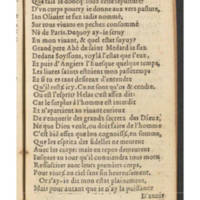 D'vn corps pourry ie donne aux vers pasture,
Ian Oliuier ie fuz iadis nommé,
Sur tous viuans en pechés consommé
Né de Paris. Dequoy ay-ie seruy
En mon viuant, & quel estat suyuy?
Grand pere Abé de saint Medard ie fus
Dedans Soyssons, voylà l'estat que i'eus,
Et puis d'Angiers i'eusque quelque temps,
Les liures faitz estoient mon passetemps
Et si tu es tant desireux d'entendre
Qu'il est icy. Ce ne sont qu'os & cendre.
Ou est l'esprit Helas c'est affez dit:
Car le surplus à l'homme est interdit
Et n'apartient au viuant curieux
De r'enquerir des grandz secretz des Dieux,
Ne que Dieu veult, ou doiue faire de l'homme
C'est biē assez que lon cognoissē, en somme,
Que les espritz des fidelles ne meurent
Auecques tout cas & en repos demeurent
Iusques au iour qu'il conuiendra tous mors
Ressusciter auec leurs premiers corps,
Pour vous au ciel sans fin heureusement.
Or t'ay-ie dit mon estat plainement,
Mais pour autant que ie n'ay la puissance
D'auoir